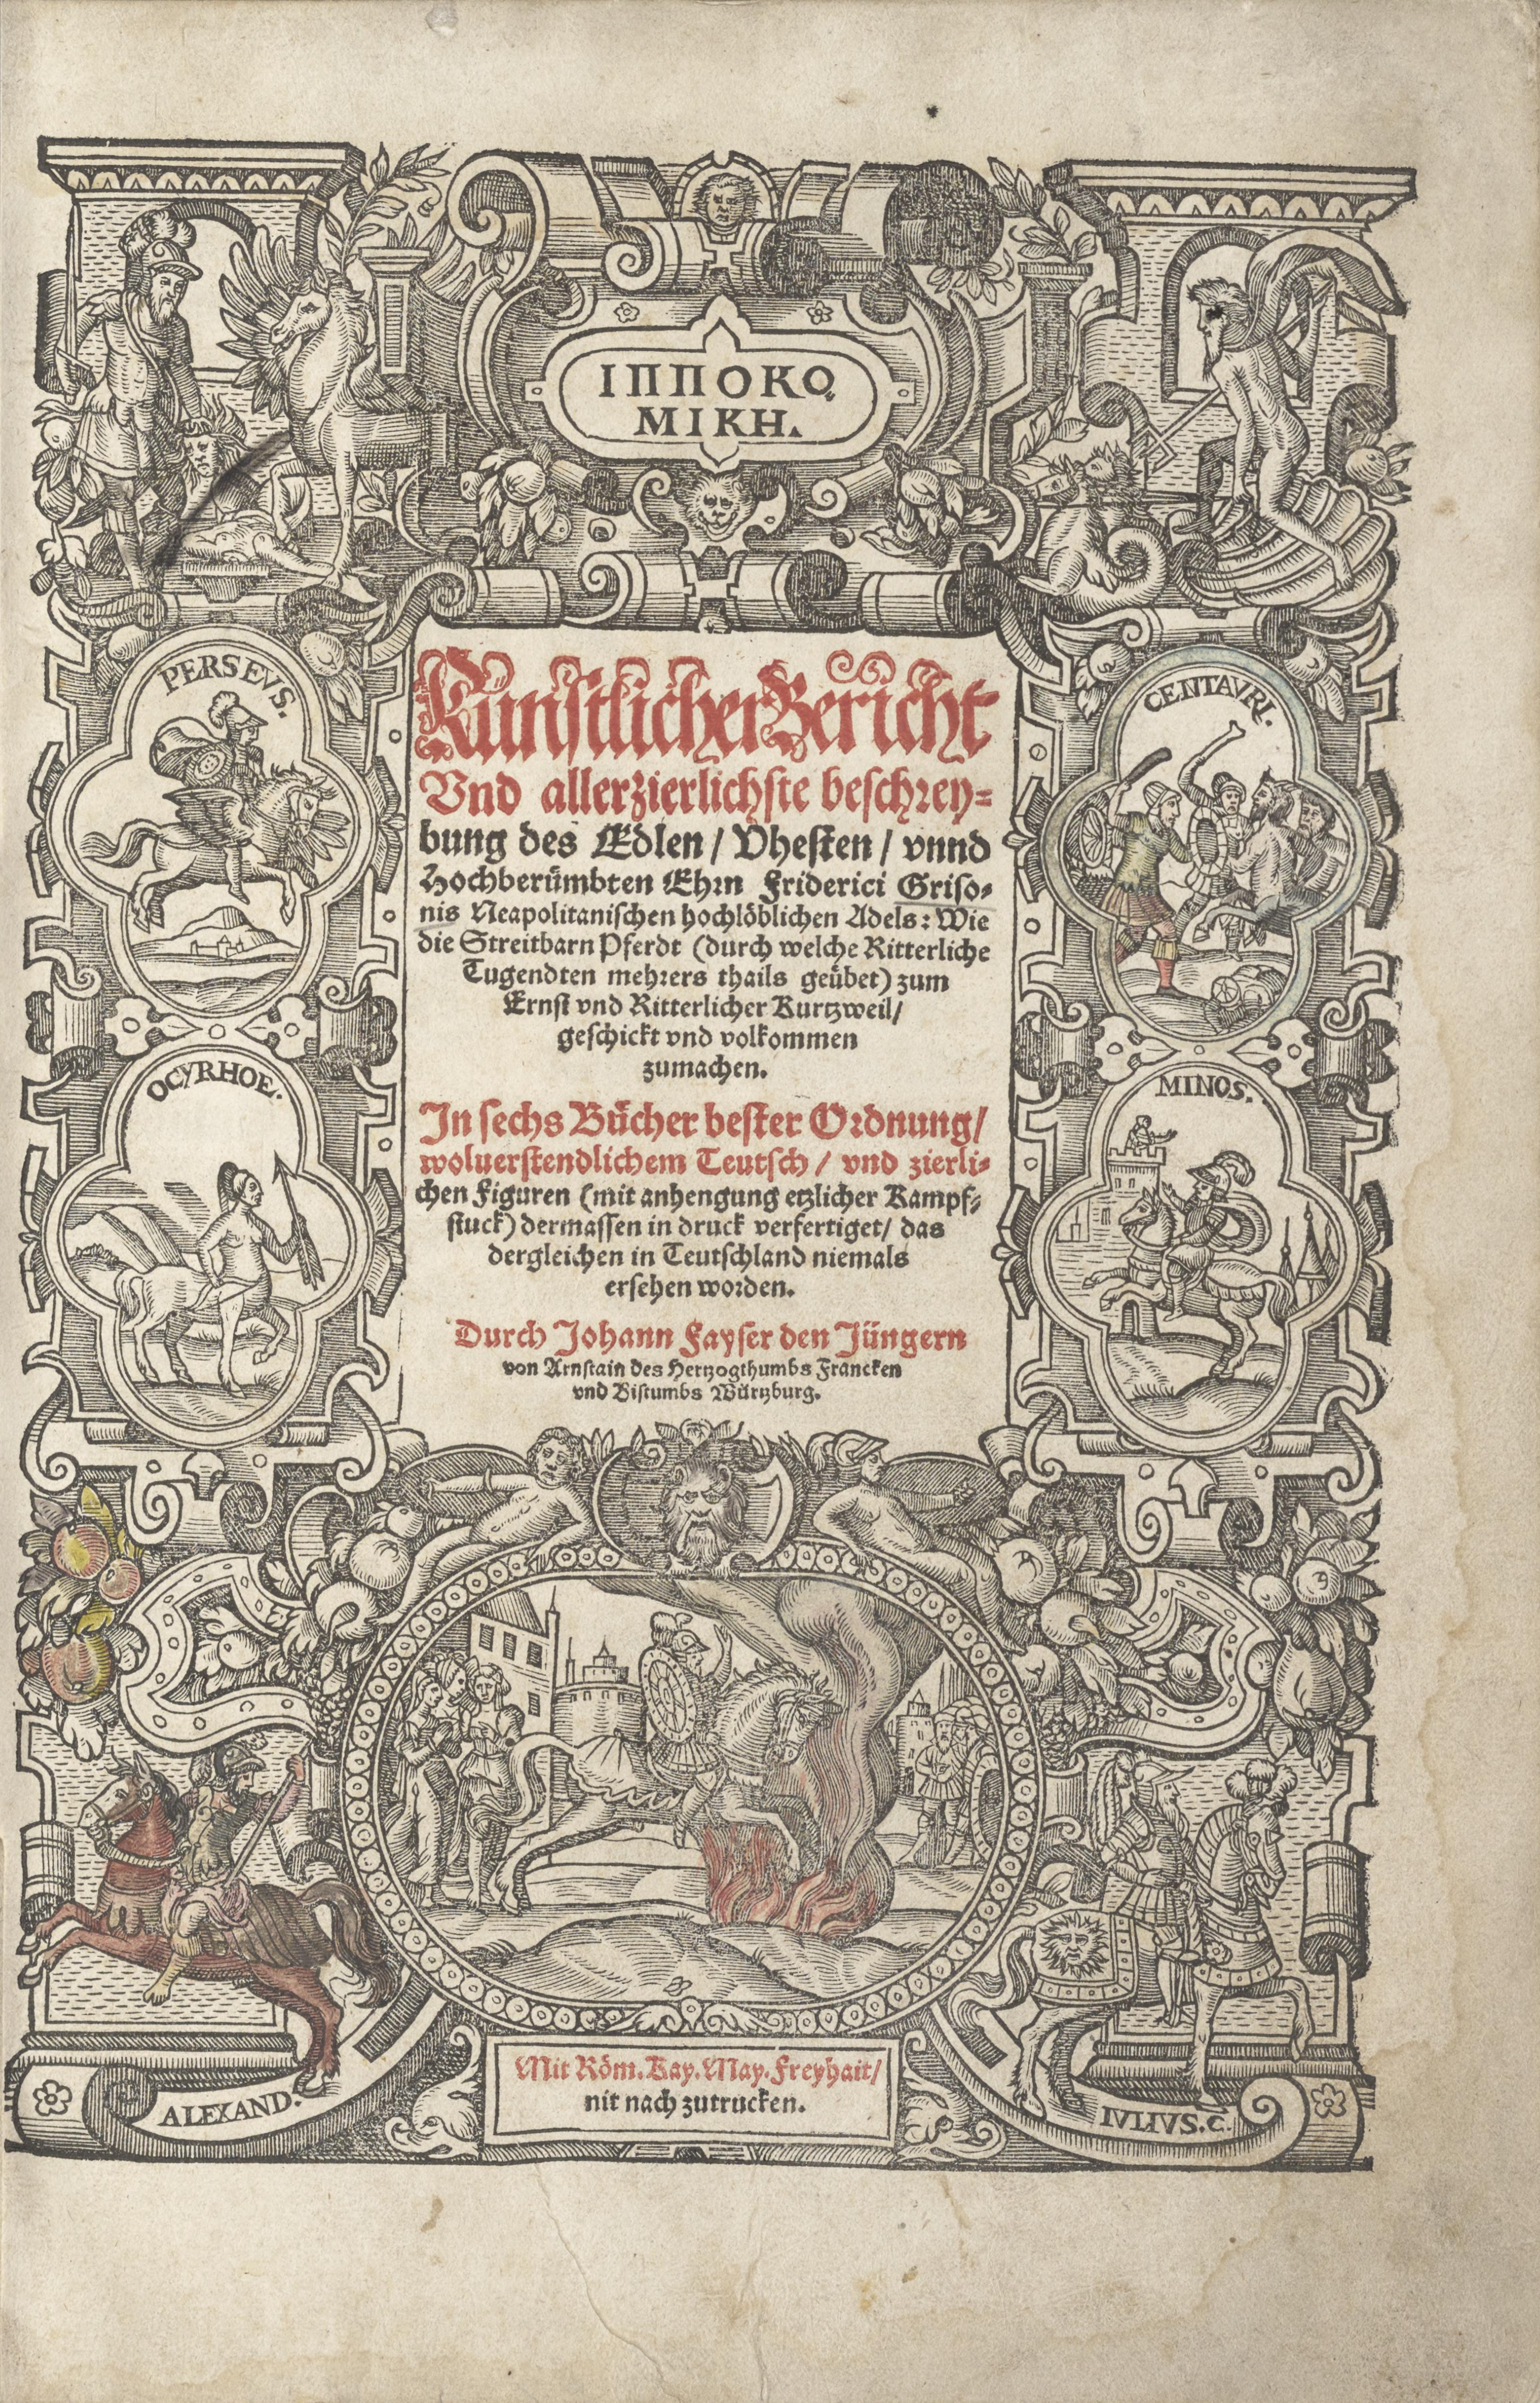 ΙΠΠΟΚΟ,
ΜΙΚΗ.
PERSEVS.
CENTAVRI.
OCYRHOE.
MINOS.
Künstlicher Bericht
Vnd allerzierlichste beschrey-
bung des Edlen / Vhesten / vnnd
Hochberümbten Ehrn Friderici Griso-
nis Neapolitanischen hochlöblichen Adels: Wie
die Streitbarn Pferdt (durch welche Ritterliche
Tugendten mehrers thails geübet) zum
Ernst vnd Ritterlicher Kurtzweil/
geschickt vnd volkommen
zumachen.
In sechs Bücher bester Ordnung/
woluerstendlichem Teutsch / vnd zierli-
chen Figuren (mit anhengung etzlicher Kampf-
stuck) dermassen in druck verfertiget/ das
dergleichen in Teutschland niemals
ersehen worden.
Durch Johann Fayser den Jüngern
von Arnstain des Hertzogthumbs Francken
vnd Bistumbs Würtzburg.
Mit Röm. Kay. May. Freyhait/
nit nach zutrucken.
ALEXAND.
IVLIVS.C.